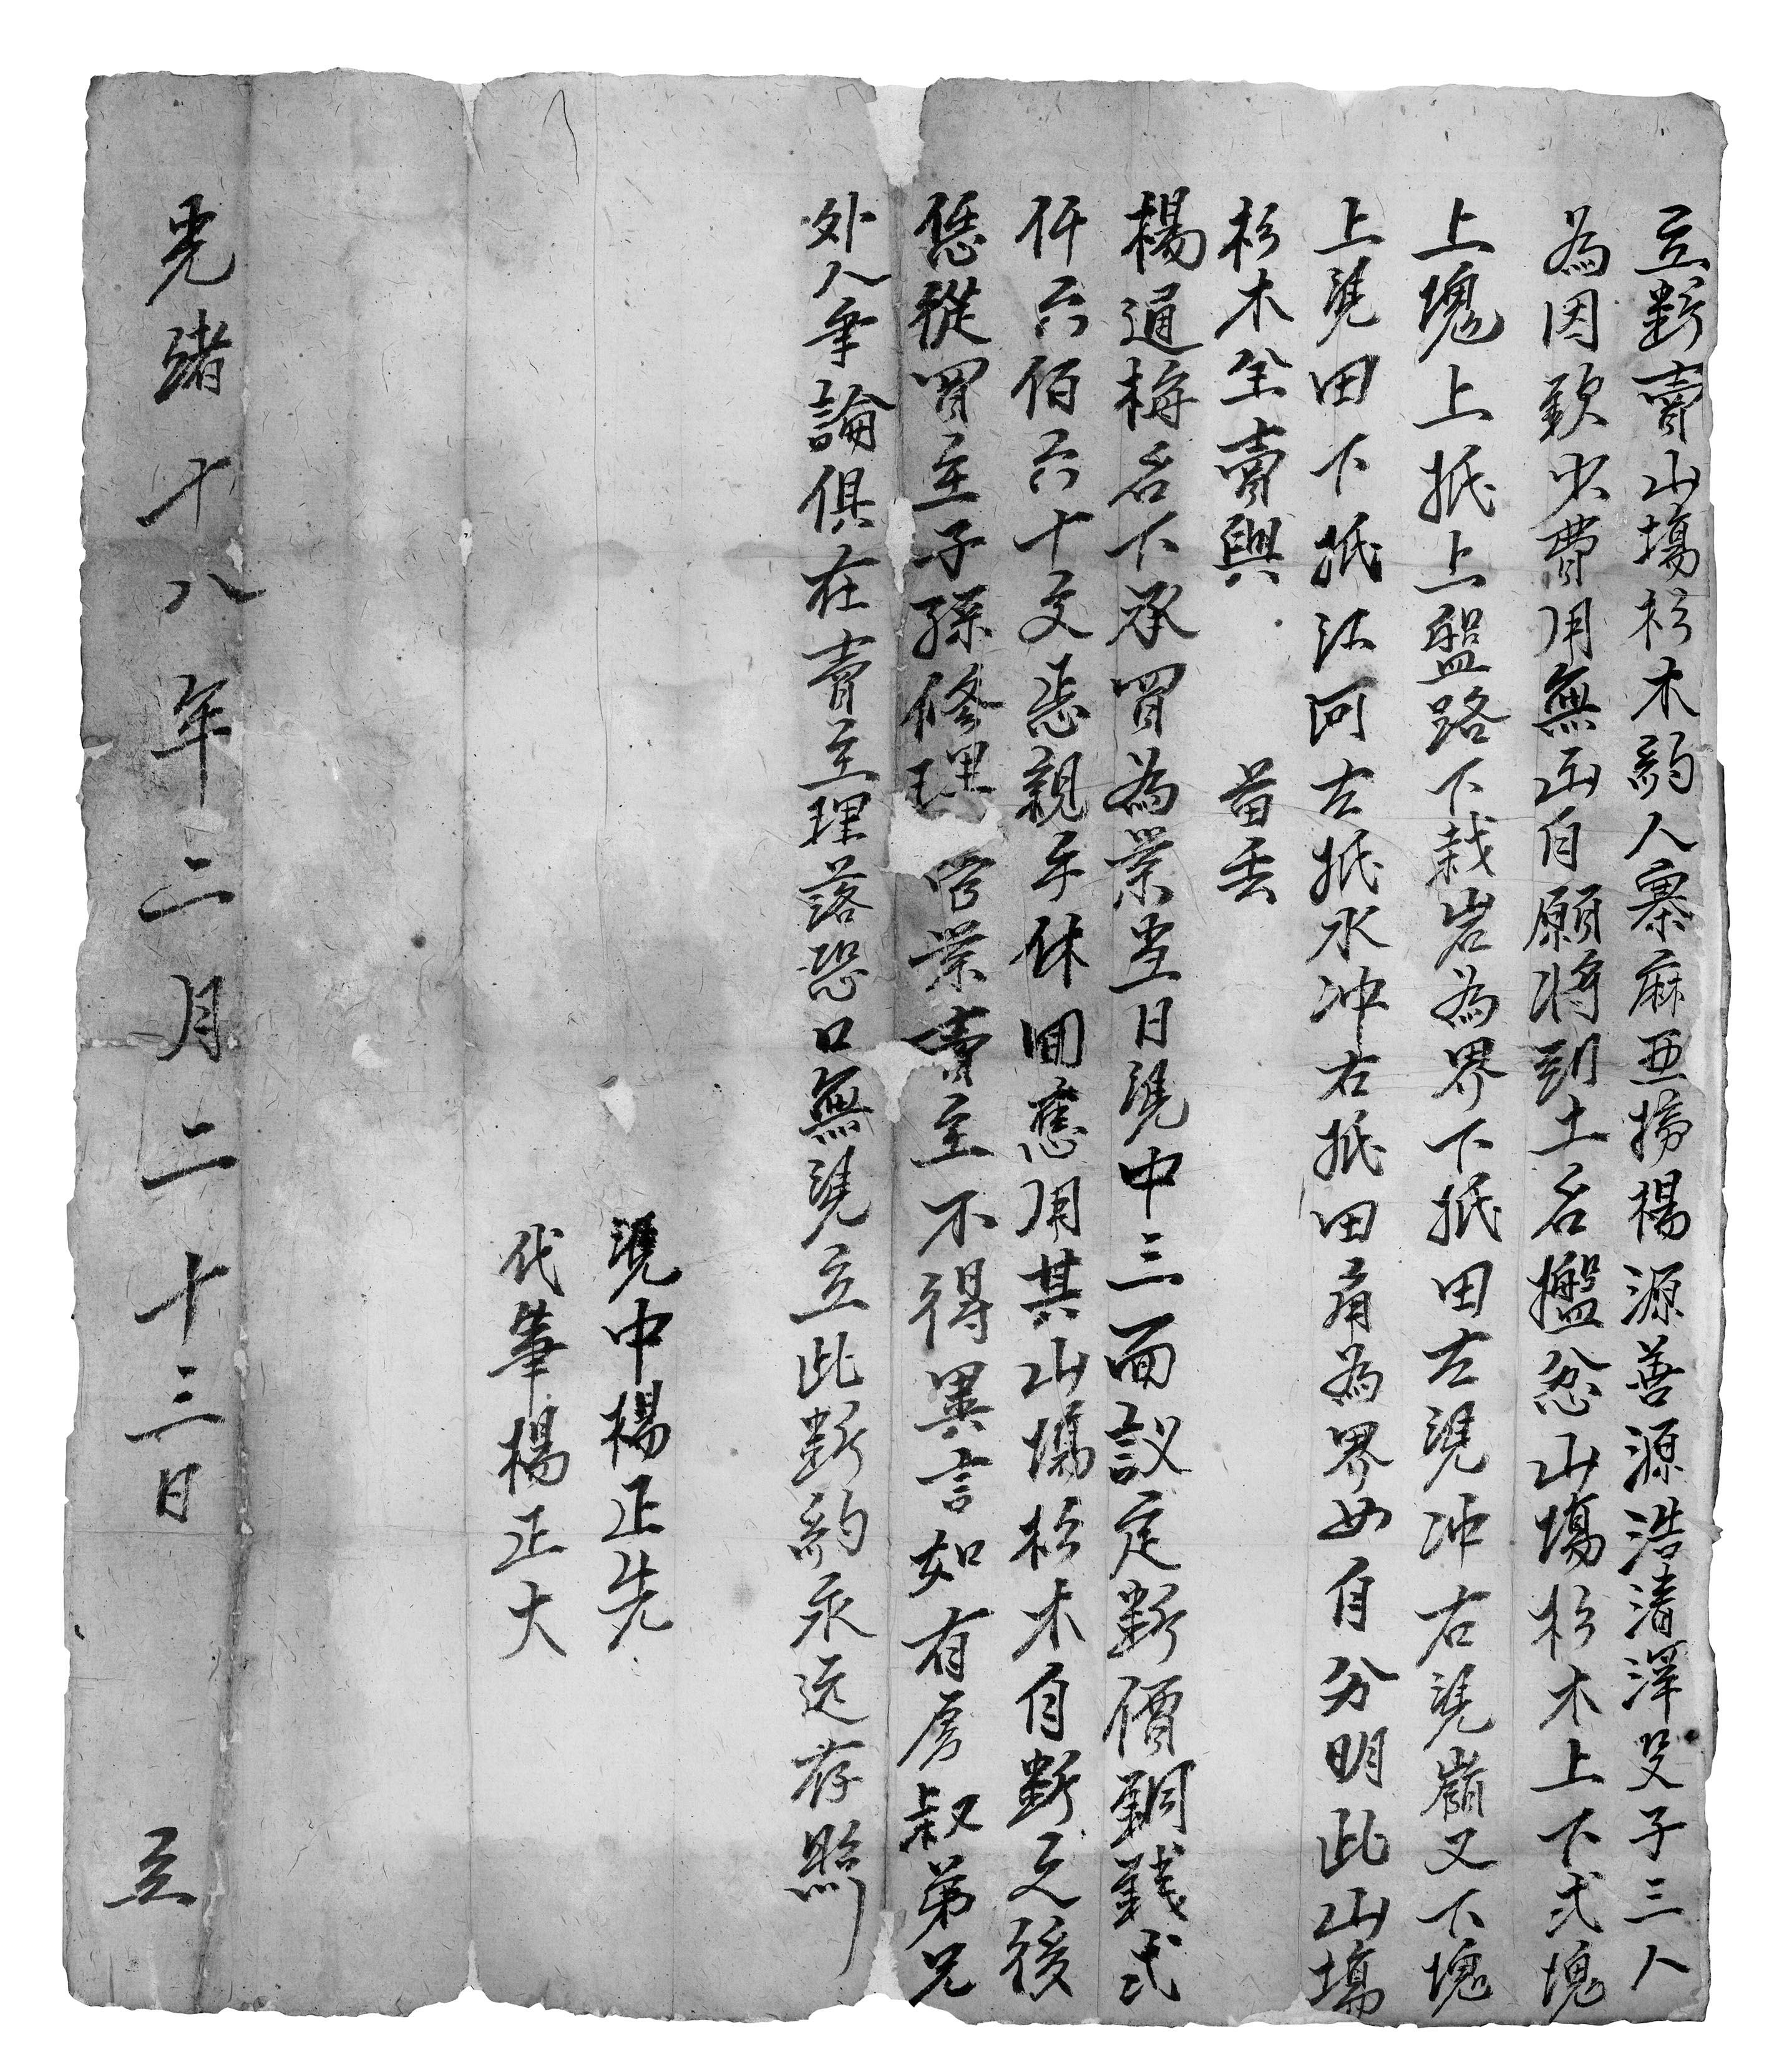 立斷賣山塲杉木約人寨麻亜榜楊源善源浩清澤父子三人
為因欠少費用無出自願將到土名盤忿山塲杉木上下弍塊
上塊上抵上盤路下栽岩為界下抵田左凴冲右凴嶺又下塊
上凴田下抵江河左抵水冲右抵田角為界四自分明此山塲
杉木全賣與 苗丢
楊通梅名下承買為業当日凴中三面議定斷價銅錢弍
仟六佰六十文悉親手休回應用其山塲杉木自斷之後
恁從買主子孫修理 管業賣主不得異言如有房叔弟兄
外人爭論俱在賣主理落恐口無凴立此斷約永远存照
凴中楊正先
代筆楊正大
光緒十八年二月二十三日 立